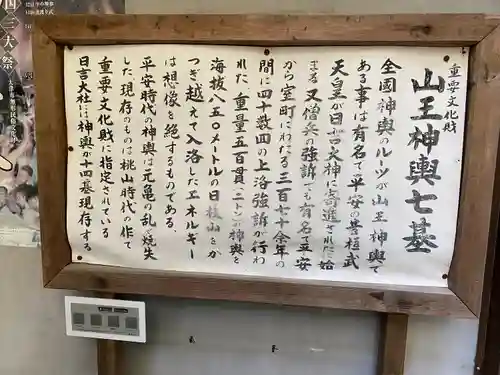 重要文化財
山王神輿七基
全國神輿のルーツが山王神輿で
ある事は有名で平安の昔桓武
天皇が日吉大神に寄進された始
まる 又僧兵の強訴でも有名で平安
から室町にわたる三百七十余年の
間に四十数回の上洛強訴が行わ
れた 重量五百貫(二トン)の神輿を
海抜八五〇メートルの日枝山をか
つぎ越えて入洛したエネルギー
は想像を絶するものである
平安時代の神輿は元亀の乱で焼失
した 現存のものは桃山時代の作で
重要文化財に指定されている
日吉大社には神輿が十四基現存する
国三大祭